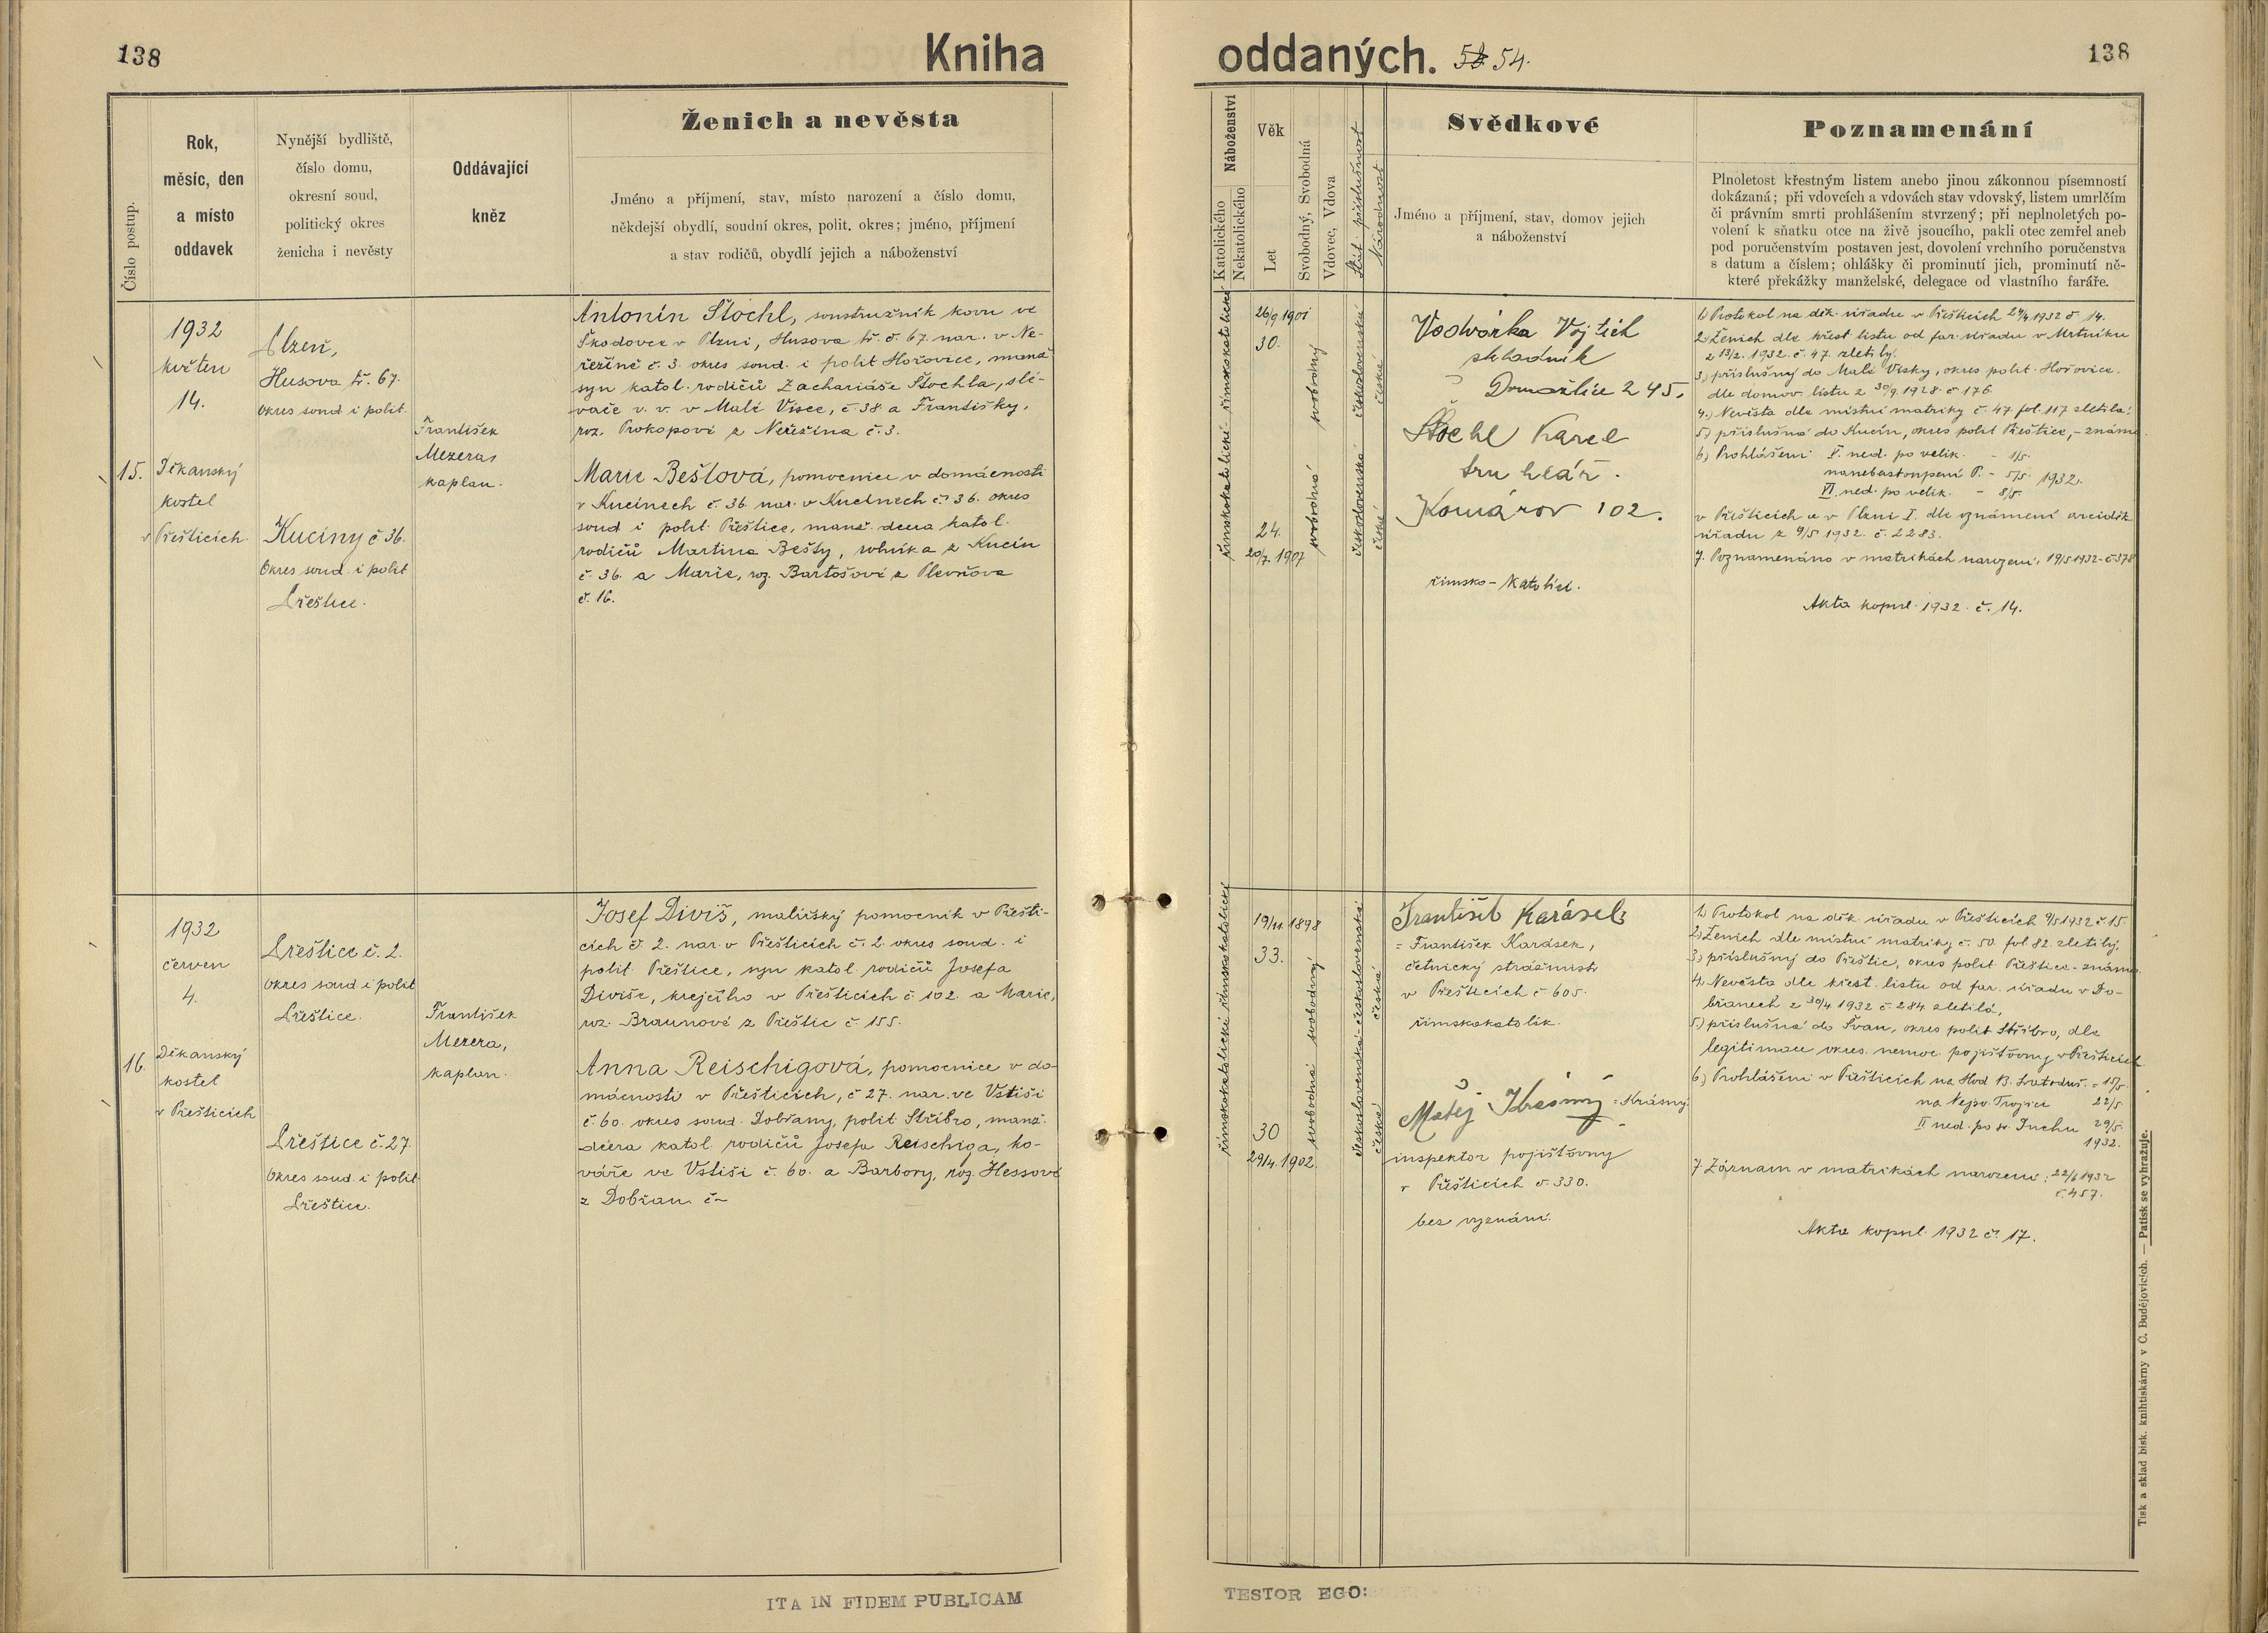 138
Kniha
Ženich a nevěsta
Číslo postup.
Rok,
měsíc, den
a místo
oddavek
Nynější bydliště,
číslo domu,
okresní soud,
politický okres
ženicha i nevěsty
Oddávající
kněz
Jméno a příjmení, stav, místo narození a číslo domu,
někdejší obydlí, soudní okres, polit. okres; jméno, příjmení
a stav rodičů, obydlí jejich a náboženství
15.
1932
květen
14.
Děkanský
kostel
v Přešticích
Plzeň,
Husova tř. 67.
okres soud. i polit.
Kuciny č 36.
Okres soud. i polit
Přeštice.
František
Mezera,
kaplan.
Antonín Štochl, soustružník kovu ve
Škodovce v Plzni, Husova tř. č. 67. nar. v Ne-
řežíně č. 3. okres soud. i polit Hořovice, manž.
syn katol. rodičů Zachariáše Štochla, slé-
vače v. v. v Malé Visce, č. 38 a Františky,
roz. Prokopové z Neřežína č. 3.
Marie Beštová, pomocnice v domácnosti
v Kucínech č. 36 nar. v Kucínech č. 36. okres
soud i polit. Přeštice, manž. dcera katol.
rodičů Martina Bešty, rolníka z Kucín
č. 36. a Marie, roz. Bartošové z Plevňova
č. 16.
16.
1932
červen
4.
Děkanský
kostel
v Přešticích
Přeštice č. 2.
okres soud i polit
Přeštice.
Přeštice č. 27.
okres soud. i polit.
Přeštice.
František
Mezera,
kaplan.
Josef Diviš, malířský pomocník v Přešti-
cích č. 2. nar. v Přešticích č. 2. okres soud. i
polit. Přeštice, syn katol. rodičů Josefa
Diviše, krejčího v Přešticích č. 102. a Marie,
roz. Braunové z Přeštic č. 155.
Anna Reischigová, pomocnice v do-
mácnosti v Přešticích, č 27. nar. ve Vstiši
č. 60. okres soud. Dobřany, polit Stříbro, manž.
dcera katol. rodičů Josefa Reischiga, ko-
váře ve Vstiši č. 60. a Barbory, roz. Hessové
z Dobřan č –
ITA IN FIDEM PUBLICAM
oddaných. 54.
138
Náboženství
Katolického
Nekatolického
Věk
Let
Svobodný, Svobodná
Vdovec, Vdova
Stát. příslušnost
Národnost
Svědkové
Jméno a příjmení, stav, domov jejich
a náboženství
Poznamenání
Plnoletost křestným listem anebo jinou zákonnou písemností
dokázaná; při vdovcích a vdovách stav vdovský, listem umrlčím
či právním smrti prohlášením stvrzený; při neplnoletých po-
volení k sňatku otce na živě jsoucího, pakli otec zemřel aneb
pod poručenstvím postaven jest, dovolení vrchního poručenstva
s datum a číslem; ohlášky či prominutí jich, prominutí ně-
které překážky manželské, delegace od vlastního faráře.
římskokatolické římskokatolické
26/9 1901
30.
24.
20/7. 1907
svobodná svobodný
československá československá
česká česká
Vodvárka Vojtěch
skladník
Domažlice 245.
Štochl Karel
truhlář.
Komárov 102.
římsko-katolíci.
1) Protokol na děk. úřadu v Přešticích 24/4 1932 č 14.
2) Ženich dle křest. listu od far. úřadu v Mrtníku
z 13/2. 1932. č. 47. zletilý.
3) příslušný do Malé Visky, okres polit. Hořovice.
dle domov. listu z 30/9. 1928. č 176.
4.) Nevěsta dle místní matriky č. 47. fol. 117 zletilá.
5) příslušná do Kucín, okres polit Přeštice, – známo.
6) Prohlášení V. ned. po velik. – 1/5.
nanebevstoupení P. – 5/5. 1932.
VI. ned. po velik. – 8/5.
v Přešticích a v Plzni I. dle oznámení arciděk.
úřadu z 9/5 1932. č. 2283.
7. Poznamenáno v matrikách narození: 19/5 1932 – č 378
Akta kopul. 1932. č. 14.
římskokatolické římskokatolické
19/11 1898
33.
30
29/4. 1902.
svobodná svobodný
československá – československá
česká česká
František Karásek
= František Karásek,
četnický strážmistr
v Přešticích č 605.
římskokatolík.
Matěj Krásný = Krásný
inspektor pojišťovny
v Přešticích č. 330.
bez vyznání.
1) Protokol na děk. úřadu v Přešticích 9/5 1932 č. 15.
2) Ženich dle místní matriky č. 50. fol 82. zletilý.
3) příslušný do Přeštic, okres polit. Přeštice – známo.
4. Nevěsta dle křest. listu od far. úřadu v Do-
břanech z 30/4 1932 č. 284. zletilá,
5.) příslušná do Švan, okres polit Stříbro, dle
legitimace okres. nemoc. pojišťovny v Přešticích.
6.) Prohlášení v Přešticích na Hod B. svatoduš. = 15/5.
na Nejsv. Trojici 22/5
II ned. po sv. Duchu 29/5.
1932.
7. Záznam v matrikách narození: 22/6 1932
č. 457.
Akta kopul. 1932 č. 17.
TESTOR EGO:
Tisk a sklad bisk. knihtiskárny v Č. Budějovicích. — Patisk se vyhražuje.